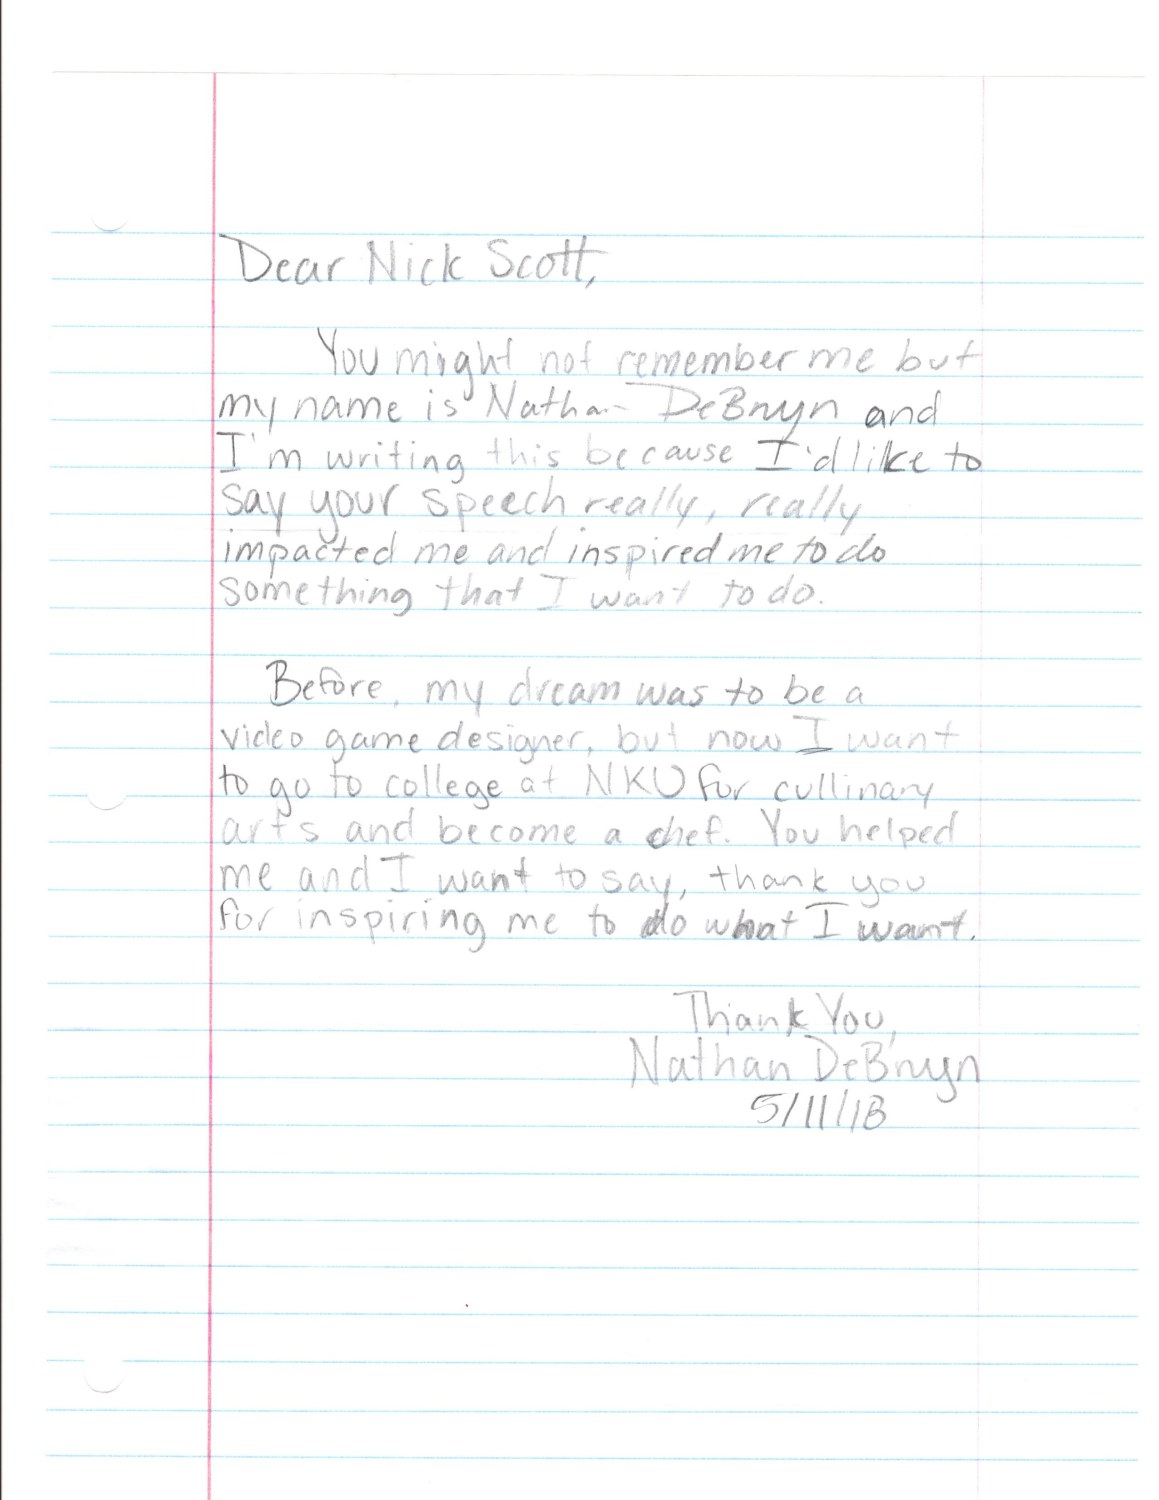 Dear Nick Scott,
You might not remember me but
my name is Nathan DeBruyn and
I'm writing this because I'd like to
say your speech really, really
impacted me and inspired me to do
something that I want to do.
Before, my dream was to be a
video game designer, but now I want
to go to college at NKU for cullinary
arts and become a chef. You helped
me and I want to say, thank you
for inspiring me to do what I want.
Thank You,
Nathan DeBruyn
5/11/18